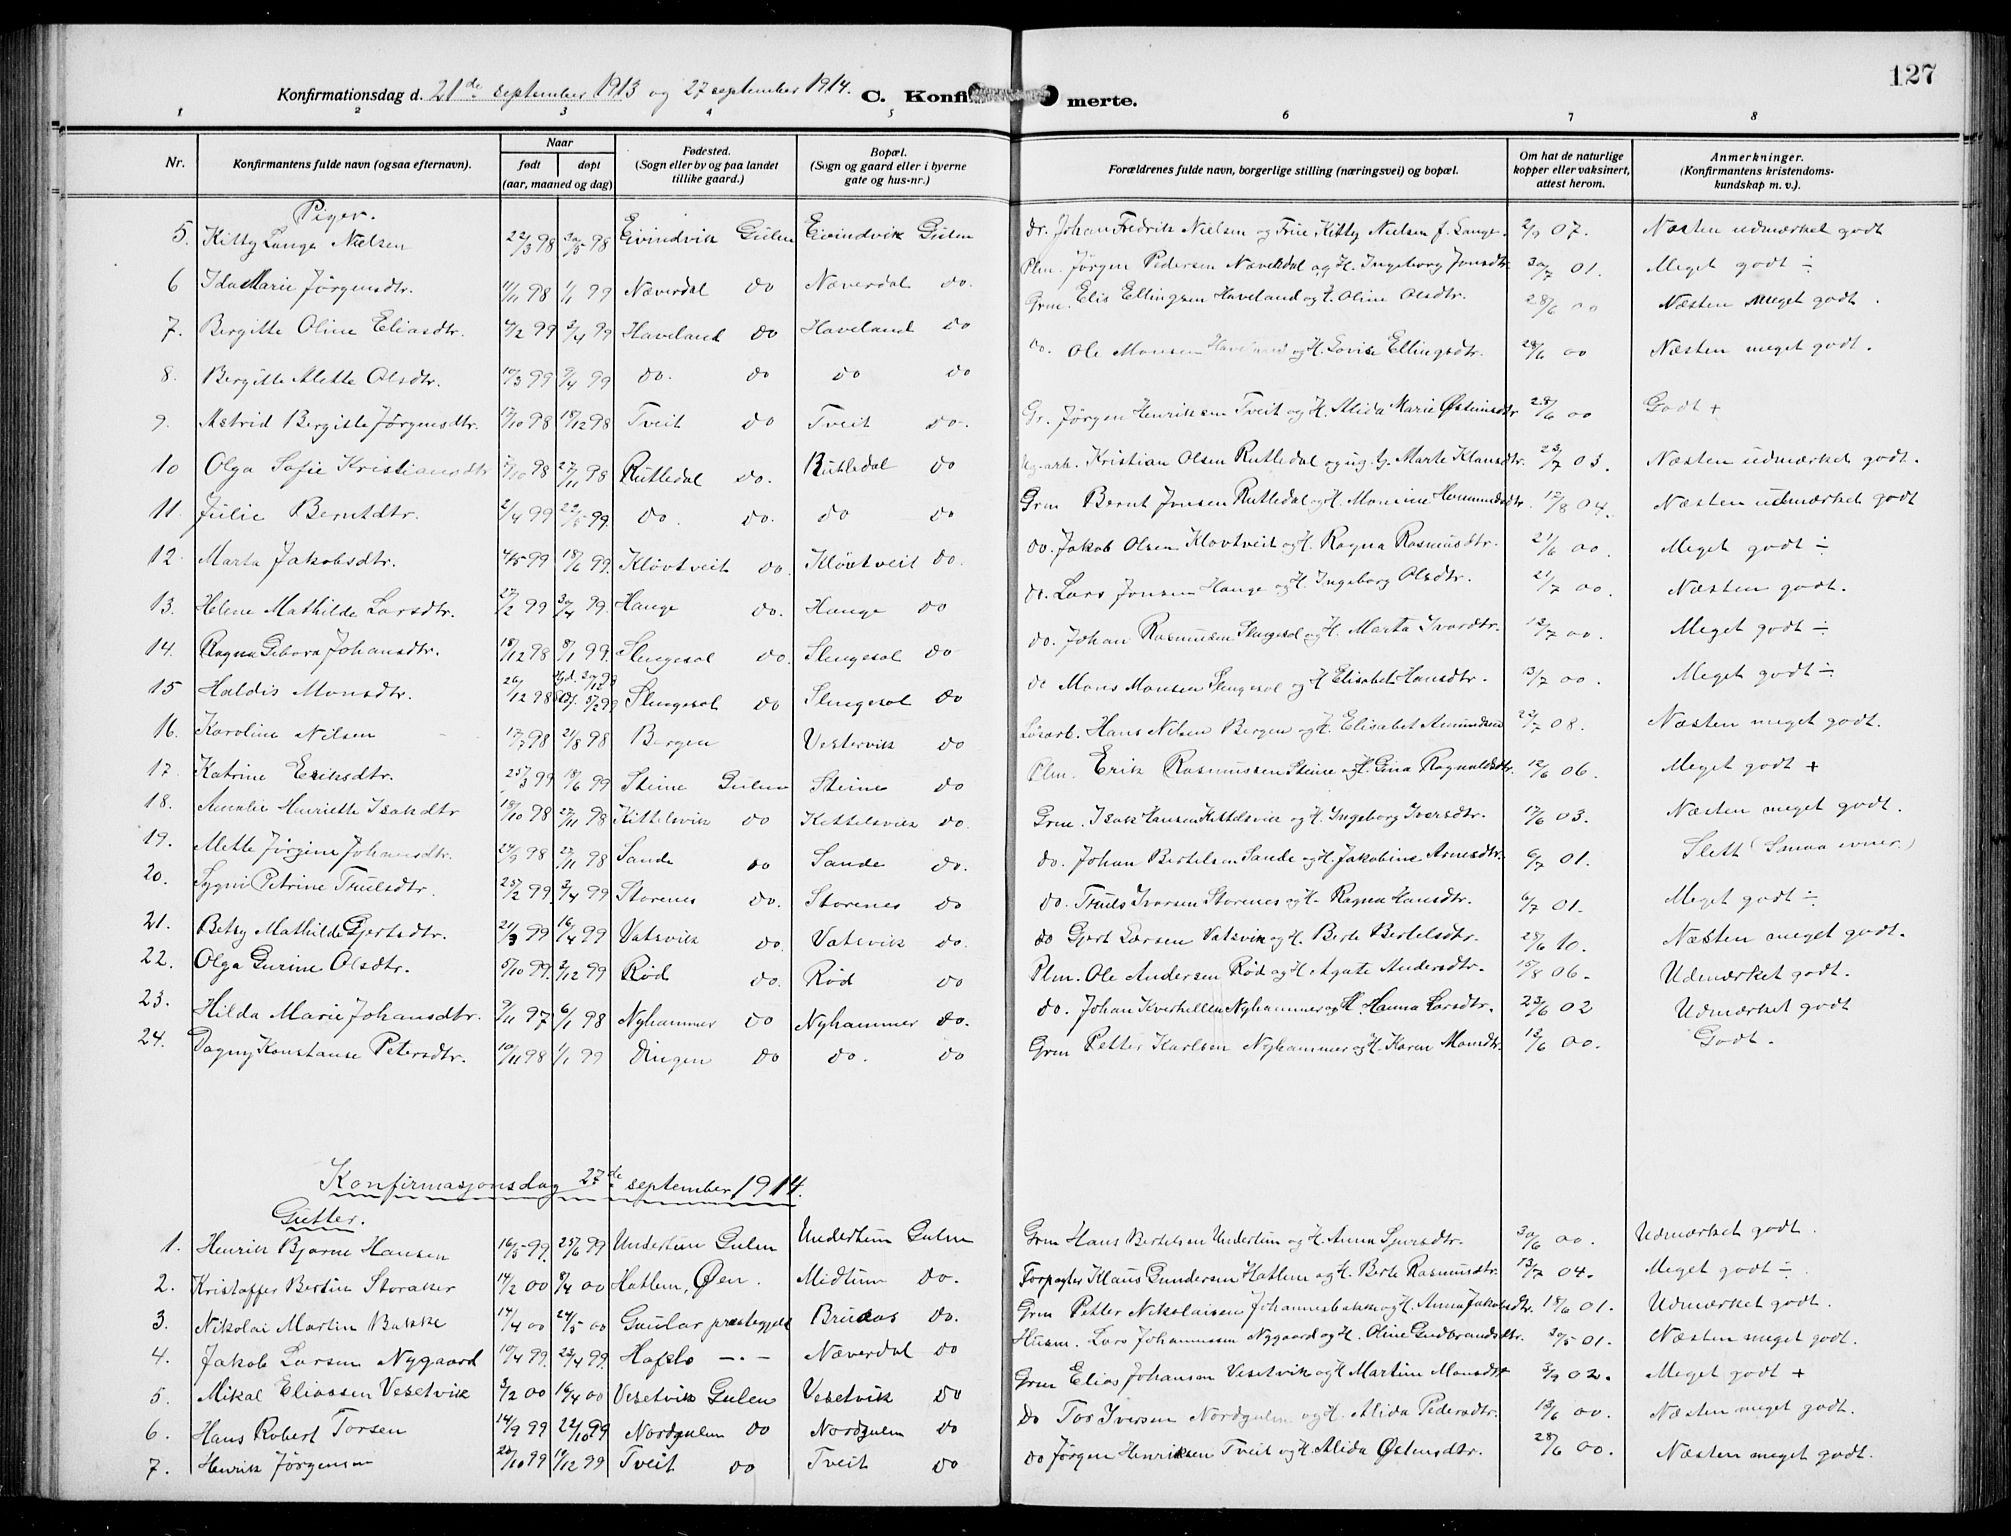 127
Konfirmationsdag d. 21de september 1913 og 27 september 1914. C. Konfi merte.
1 2 3 4 5 6 7 8
Nr. Konfirmantens fulde navn (ogsaa efternavn). Naar født døpt (aar, maaned og dag) Fødested. (Sogn eller by og paa landet tillike gaard.) Bopæl. (Sogn og gaard eller i byerne gate og hus-nr.) Forældrenes fulde navn, borgerlige stilling (næringsvei) og bopæl. Om hat de naturlige kopper eller vaksinert, attest herom. Anmerkninger. (Konfirmantens kristendomskundskap m. v.).
Piger.
5. Kitty Lange Nielsen 22/3 98 30/5 98 Eivindvik Gulen Eivindvik Gulen Dr. Johan Fredrik Nielsen og Frue Kitty Nielsen f. Lange. 2/9 07. Næsten udmærket godt
6 Ida Marie Jørgensdtr. 11/11 98 1/1 99 Næverdal do Næverdal do. Plm. Jørgen Pedersen Næverdal og H. Ingeborg Jonsdtr. 30/7 01. Meget godt ÷
7. Bergitte Oline Eliasdtr. 4/2 99 3/4 99 Haveland do Haveland do Grm. Elis Ellingsen Haveland og H. Oline Olsdtr. 28/6 00 Næsten meget godt.
8. Bergitte Mette Olsdtr. 10/3 99 9/4 99 do. do do do do. Ole Monsen Haveland og H. Lovise Ellingsdtr. 28/6 00 Næsten meget godt.
9. Astrid Bergitte Jørgensdtr. 17/10 98 18/12 98 Tveit do Tveit do. Gr. Jørgen Henriksen Tveit og H. Alida Marie Østensdtr 28/6 00 Godt +
10 Olga Sofie Kristiansdtr 98 27/11 98 Rutledal do. Rutledal do Kristian Olsen Rutledal og ug. Marte Klausdtr. 23/7 03. Næsten udmærket godt.
11. Julie Berntdtr. 2/4 99 22/5 99. do. do. do do Grm Bernt Jonsen Rutledal og H. 17/8 04. Næsten udmærket godt
12. Marta Jakobsdtr. 4/5 99 18/6 99. Kløvtveit do. Kløvtveit do. do. Jakob Olsen Kløvtveit og H. Ragna Rasmusdtr. 21/6 00. Meget godt ÷
13. Helene Mathilde Larsdtr. 27/2 99 3/4 99. Hauge do. Hauge do do. Lars Jonsen Hauge og H. Ingeborg Olsdtr. 21/7 00. Næsten godt.
14. Ragna Johansdtr. 18/12 98 8/1 99. Slengesol do. Slengesol do do. Johan Rasmusen Slengesol og H. Marta Ivardtr. 13/7 00. Meget godt ÷
15 Haldis Monsdtr. 26/12 98 Slengesol do Slengesol do do Mons Monsen Slengesol og H Elisabet Hansdtr. 13/7 00. Meget godt ÷
16. Karoline Nilsen 17/7 98 21/8 98 Bergen Vestervik do Løsarb. Hans Nilsen Bergen og H. Elisabet Amundsen 22/7 08. Næsten meget godt.
17. Katrine Eriksdtr. 25/3 99 18/6 99 Steine Gulen Steine do Plm. Erik Rasmussen Steine og H. Gina Ragnaldsdtr. 12/6 06. Meget godt +
18. Amalie Henriette Isakdtr 18/10 98 27/11 98 Kittelsvik do Kittelsvik do. Grm. Isak Hansen Kittelsvik og H. Ingeborg Iversdtr. 17/6 03. Næsten meget godt.
19. Mette Jørgine Johansdtr. 24/9 98 27/11 98 Sande do Sande do. do. Johan Bertelsen Sande og H. Jakobine Arnesdtr. 6/7 01. Slett (Smaa evner.)
20. Sygni Petrine Trulsdtr. 25/2 99 3/4 99 Storenes do. Storenes do do. Truls Ivarsen Storenes og H. Ragna Hansdtr. 6/7 01. Meget godt ÷
21. Betsy Mathilde Gjertsdtr. 21/3 99 16/4 99 Vatsvik do. Vatsvik do. do Gjert Larsen Vatsvik og H. Berte Bertelsdtr. 28/6 10. Næsten meget godt.
22. Olga Gurine Olsdtr. 5/10 99. 3/12 99 Rød do. Rød do Plm. Ole Andersen Rød og H. Agate Andersdtr. 15/8 06. Udmærket godt.
23. Hilda Marie Johansdtr. 9/11 97 6/1 98 Nyhammer do Nyhammer do. do. Johan Kverhellen Nyhammer og H. Hanna Larsdtr. 23/6 02 Udmærket godt
24. Dagny Konstanse Petersdtr. 10/11 98 1/1 99 Dingen do do. do Grm Petter Karlsen Nyhammer og H. Karen Monsdtr. 13/6 00. Godt.
Konfirmasjonsdag 27de september 1914.
Gutter.
1. Henrik Bjarne Hansen 16/5 99. 25/6 99 Undertun Gulen Undertun Gulen Grm Hans Bertelsen Undertun og H. Anna Sjursdtr. 30/6 00. Udmærket godt.
2. Kristoffer Bertin Storaker 14/2 00 8/4 00 Hatlem, Øen. Midtun do. Forpagter Klaus Gundersen Hatlem og H. Berte Rasmusdtr. 13/7 04. Meget godt ÷
3. Nikolai Martin Bakke 14/4 00 24/5 00 Gaular prestegjeld Bruaas do. Grm Petter Nikolaisen Johannesbakke og H. Anna Jakobsdtr. 18/6 01. Udmærket godt.
4. Jakob Larsen Nygaard 10/4 99. 23/4 99. Hafslo -.- Næverdal do Husm. Lars Johannessen Nygaard og H. Oline Gudbrandsdtr. 30/5 01. Næsten meget godt.
5. Mikal Eliassen Vesetvik 3/2 00 16/4 00 Vesetvik Gulen Vesetvik do Grm Elias Johansen Vesetvik og H Martine Monsdtr 3/9 02. Meget godt +
6. Hans Robert Torsen 14/9 99 22/10 99 Nordgulen do Nordgulen do do Tor Iversen Nordgulen og H. Alida Pedersdtr. 13/6 00. Næsten meget godt.
7. Henrik Jørgensen 20/10 99 19/12 99 Tveit do Tveit do do Jørgen Henriksen Tveit og H. Alida Østensdtr. 28/6 00. Næsten meget godt.